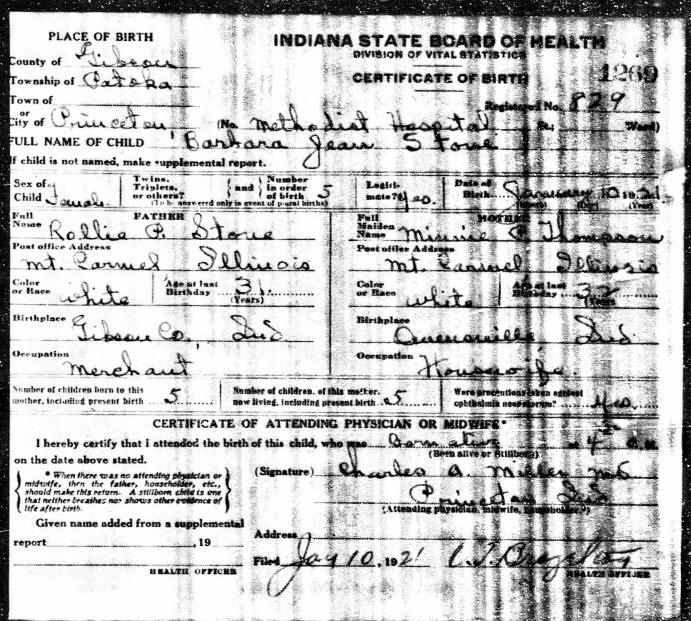 PLACE OF BIRTH
INDIANA STATE BOARD OF HEALTH
DIVISION OF VITAL STATISTICS
County of Gibson
CERTIFICATE OF BIRTH 1269
Township of Patoka
Town of
Registered No. 829
or
City of Princeton (No. Methodist Hospital St.; Ward)
FULL NAME OF CHILD Barbara Jean Stone
If child is not named, make supplemental report.
Sex of Child Female
Twins, Triplets, or others? and Number in order of birth 5
(To be answered only in event of plural births)
Legitimate? Yes.
Date of Birth January 10 1921
(Month) (Day) (Year)
FATHER
Full Name Rollie P. Stone
Post office Address
Mt. Carmel Illinois
Color or Race white
Age at last Birthday 31
(Years)
Birthplace
Gibson Co., Ind
Occupation
Merchant
MOTHER
Full Maiden Name Minnie Thompson
Post office Address
Mt. Carmel Illinois
Color or Race white
Age at last Birthday 32
(Years)
Birthplace
Owensville, Ind
Occupation
Housewife.
Number of children born to this mother, including present birth 5
Number of children, of this mother, now living, including present birth 5
Were precautions taken against ophthalmia neonatorum? yes
CERTIFICATE OF ATTENDING PHYSICIAN OR MIDWIFE*
I hereby certify that I attended the birth of this child, who was Born at
(Born alive or Stillborn)
on the date above stated.
* When there was no attending physician or
midwife, then the father, householder, etc.,
should make this return. A stillborn child is one
that neither breathes nor shows other evidence of
life after birth.
(Signature) Charles A. Miller MD
Princeton Ind
(Attending physician, midwife, householder.*)
Given name added from a supplemental
report , 19
HEALTH OFFICER
Address
Filed Jan 10, 1921
HEALTH OFFICER